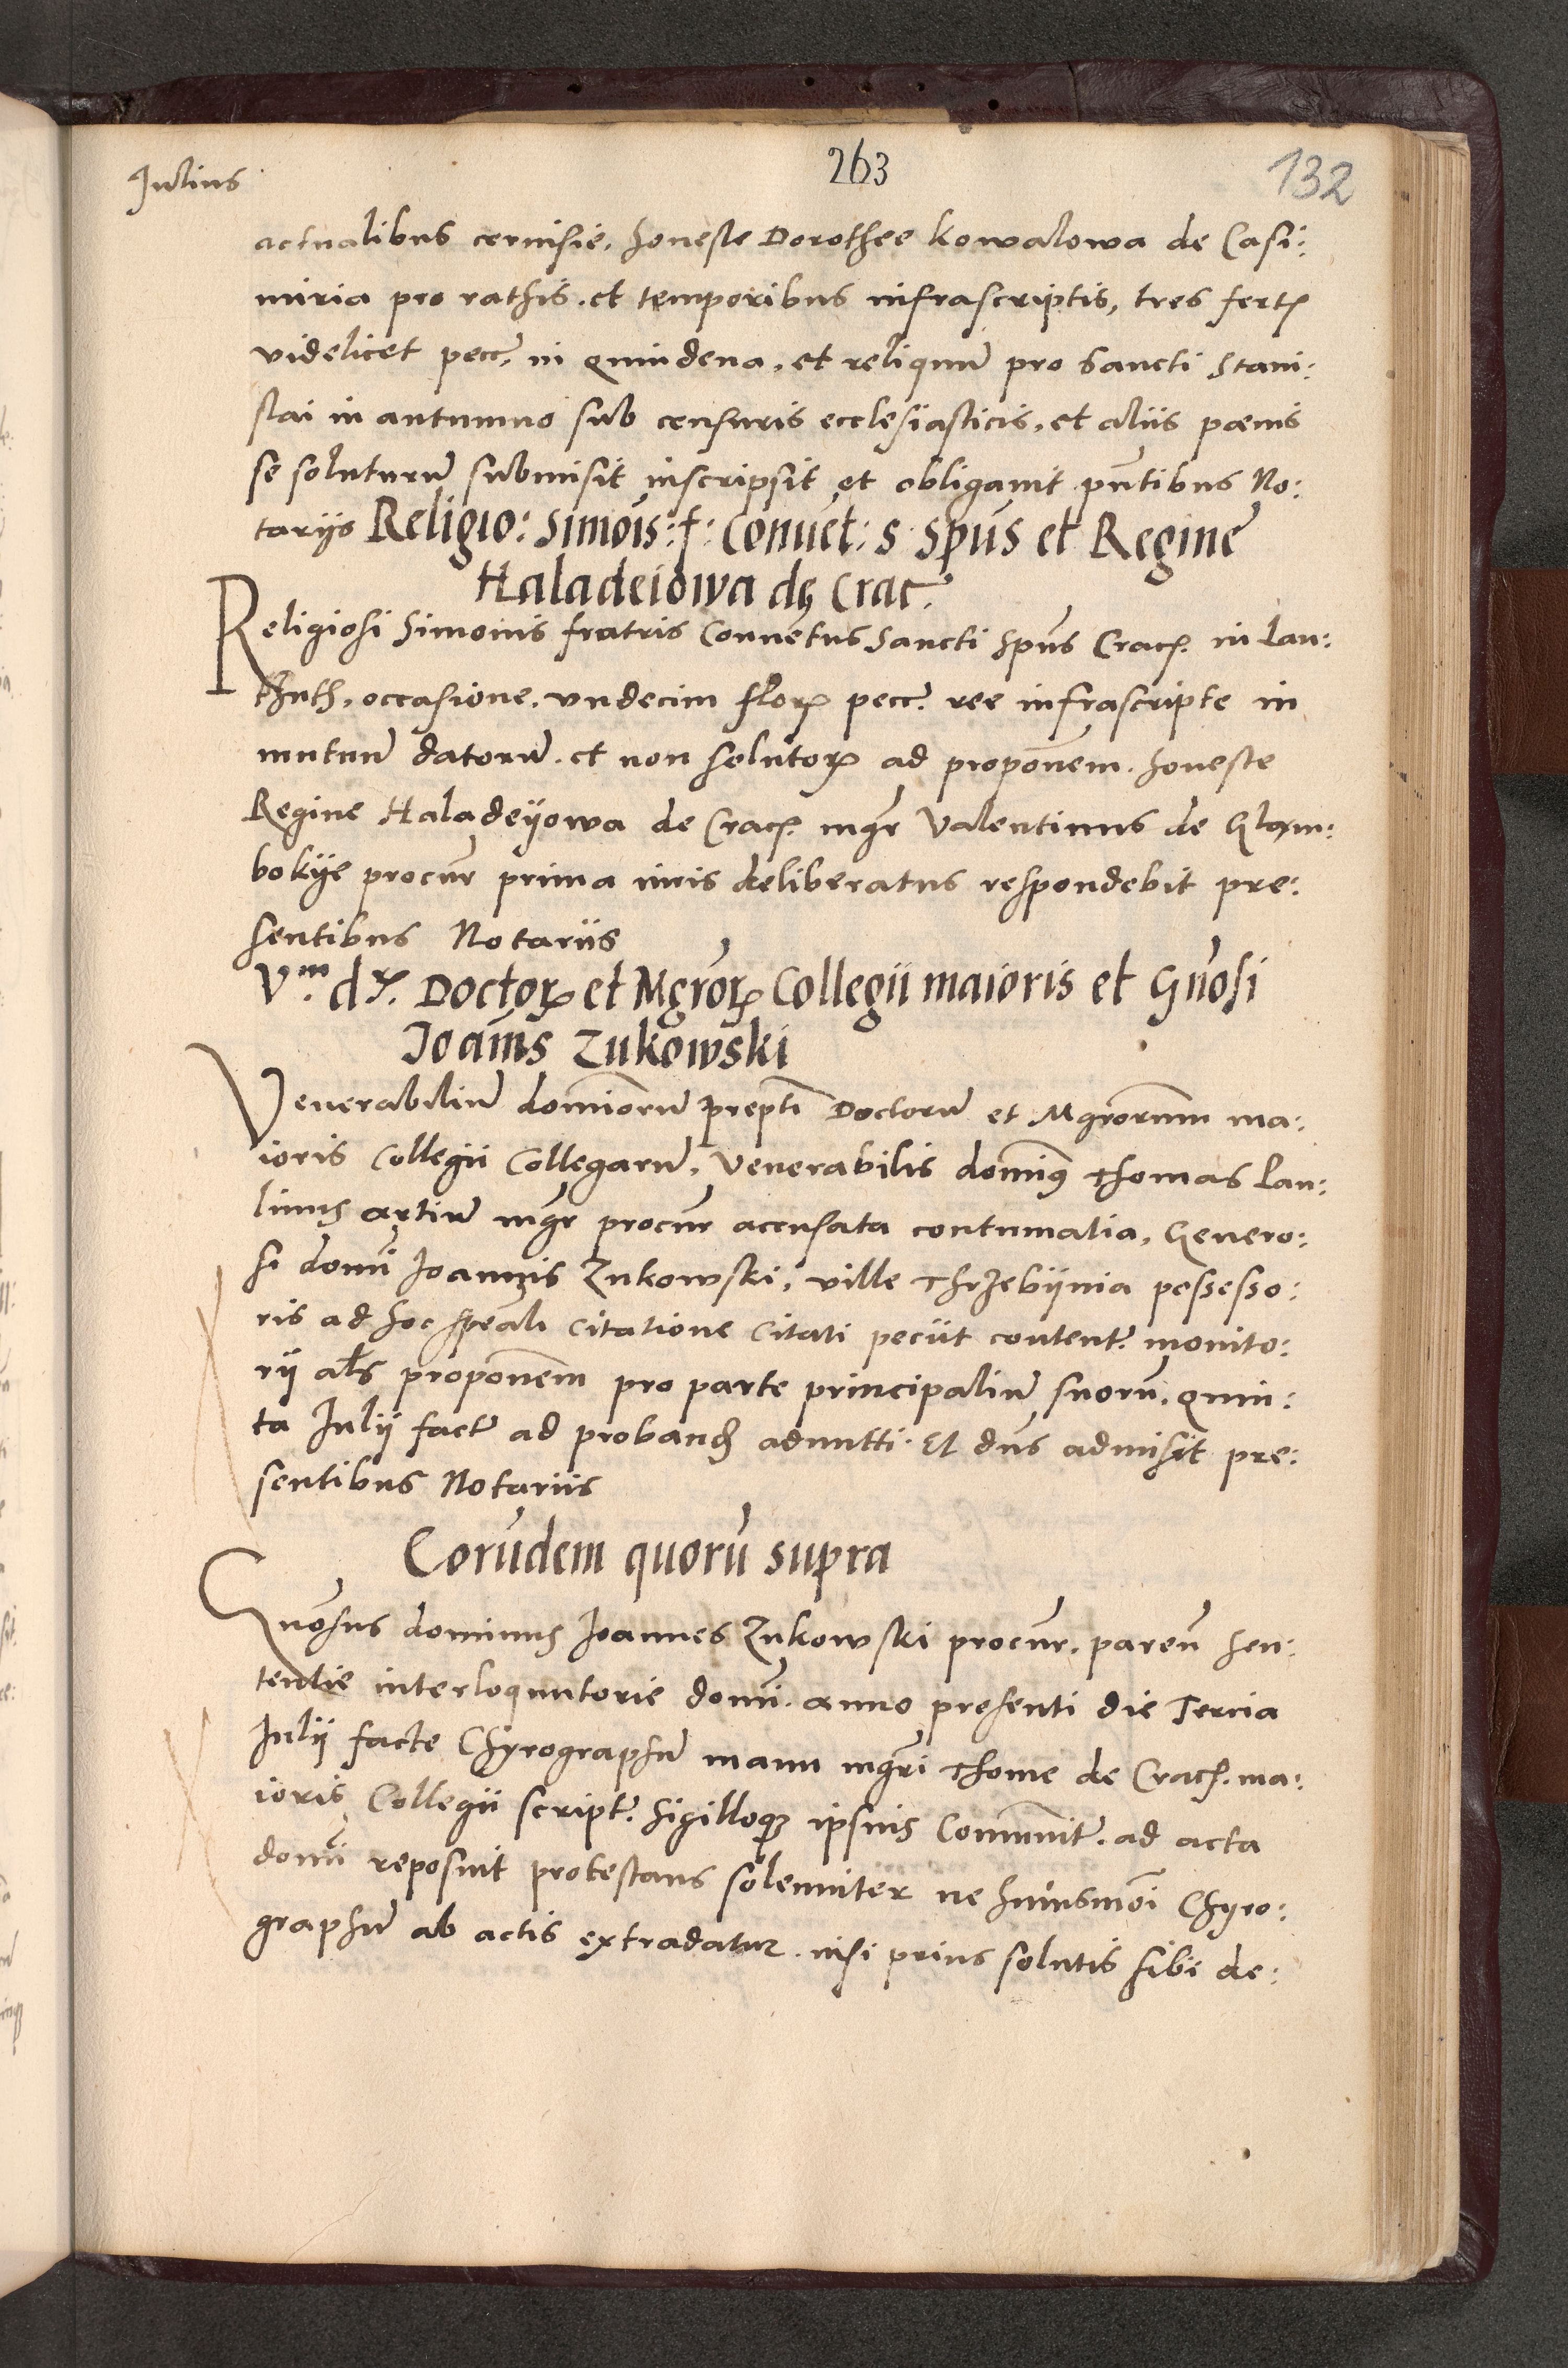 263
132
Julius
actualibus ceruisie. honeste Dorothee kowalowa de Casi:
miria pro rathis. et temporibus infrascriptis, tres fert
videlicet pecc̃ in quindena, et reliquũ pro Sancti Stani:
slai in autumno sub censuris ecclesiasticis, et aliis pœnis
se soluturũ submisit inscripsit et obligauit pñtibus No:
tariis Religio: Simõis: f: Conuẽt: S Spũs et Regine
Haladeiowa de Crac.
Religiosi Simonis fratris Conuẽtus Sancti Spũs Crac. in Lan:
occasione. vndecim floꝝ pecc̃. ree infrascripte in
mutuũ datorũ. et non solutoꝝ ad propoñem. honeste
Regine Haladeyowa de Crac. mgr̃ Valentinus de Glam:
bokije procur̃ prima iuris deliberatus respondebit pre:
sentibus Notariis
Vm. dꝝ. Doctoꝝ et Mgr̃oꝝ Collegii maioris et Gñosi
Joañis Zukowski
Venerabiliũ dominorũ Doctorũ et Mgr̃orum ma:
ioris Collegii Collegarũ, Venerabilis dominꝰ Thomas Lau:
linus artiũ mgr̃ procur̃ acensata contumatia, Genero:
si domi Joannis Zukowski, ville Thrzebijnia possesso:
ris ad hoc sp̃eali citatione citati peciit content̃ monito:
rij als̃ propoñem pro parte principaliũ suorũ. quin:
ta Julij fact̃ ad probanđ admitti. Et dñs admisit pre:
sentibus Notariis
Eorũdem quorũ supra
Gñosus dominus Joannes Zukowski procur̃. pareñ sen:
tentie interloquutorie domi. anno presenti die Tercia
Julij facte Chyrographũ manu mgr̃i Thome de Crac. ma:
ioris Collegii script̃. sigilloqꝫ ipsius Cõmunit̃. ad acta
domi reposuit protestans solenniter ne huiusmõi Chyro:
graphũ ab actis extradatur. nisi prius solutis sibi de: